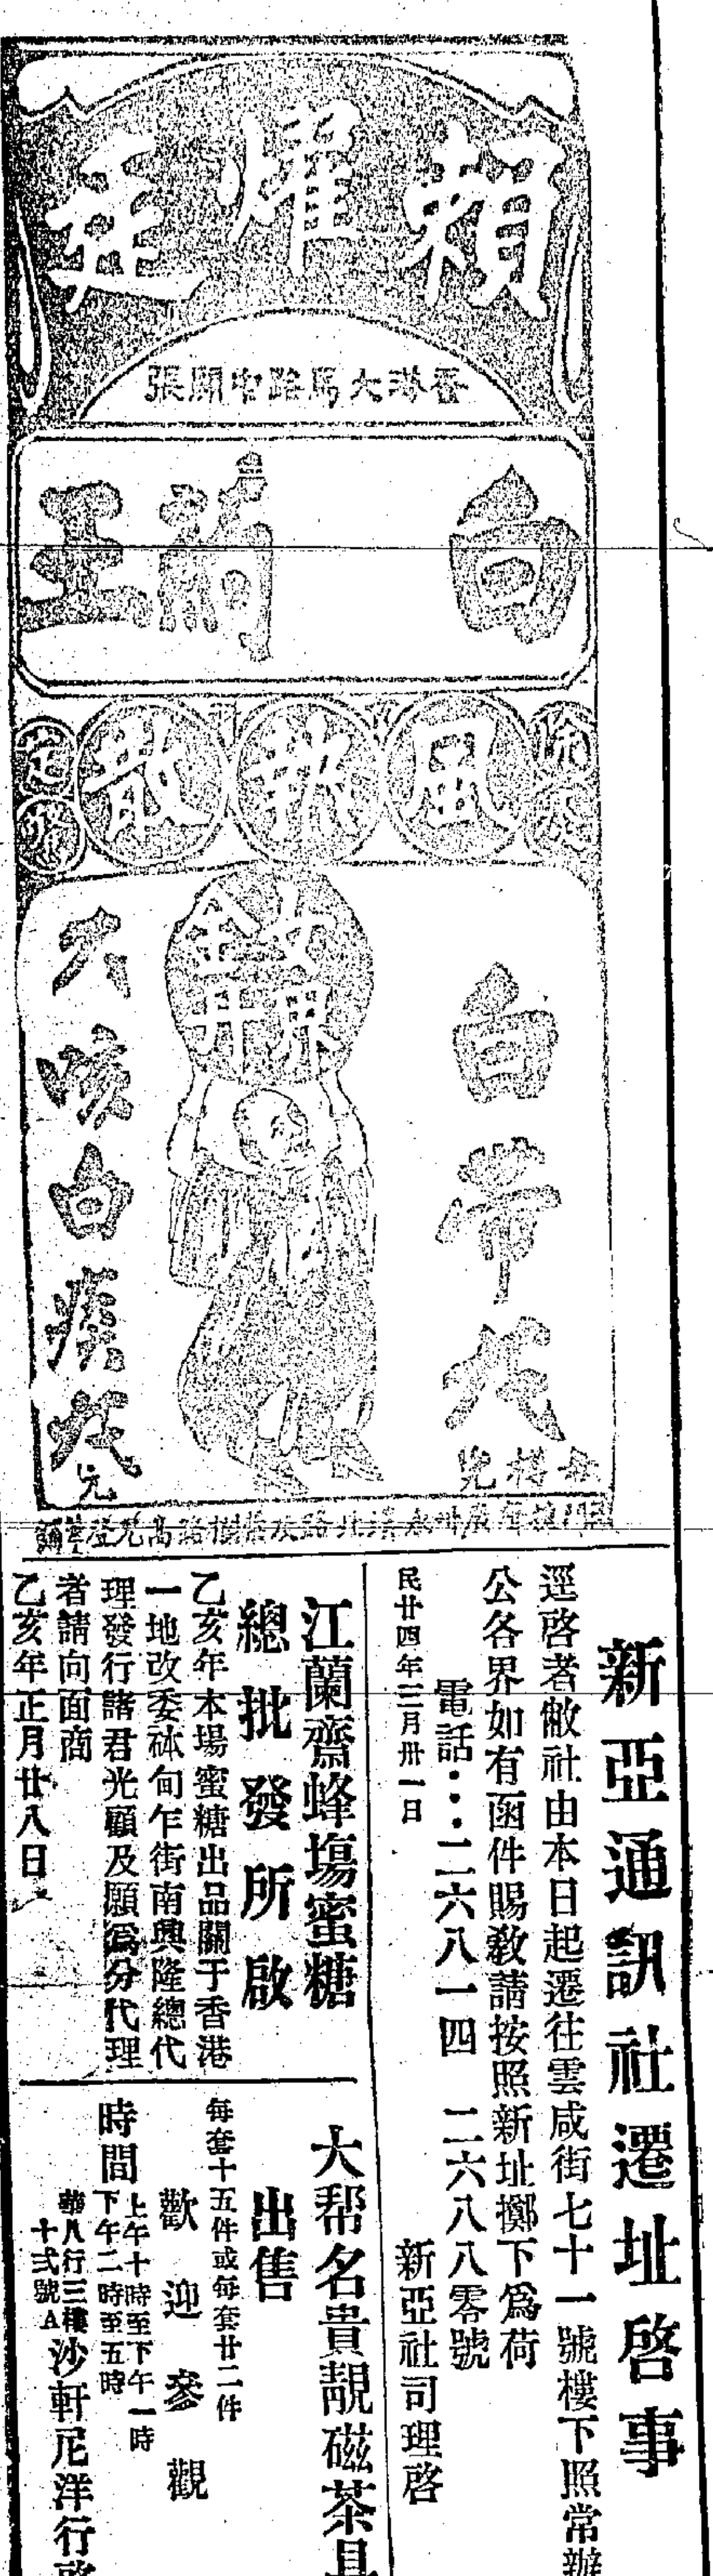 賴耀廷
香港大馬路中關張
白 王
除痰 風熱散 定驚
白帶丸
久咳白痰丸
新亞通訊社遷址啓事
逕啓者敝社由本日起遷往雲咸街七十一號樓下照常辦
公各界如有函件賜教請按照新址擲下爲荷
電話：二六八一四 二六八八零號
新亞社司理啓
民廿四年三月卅一日
江蘭齋蜂塲蜜糖
總批發所啟
乙亥年本場蜜糖出品關于香港
一地改委砵甸乍街南興隆總代
理發行諸君光顧及願爲分代理
者請向面商
乙亥年正月廿八日
大帮名貴靚磁茶具
出售
每套十五件或每套廿二件
歡迎參觀
時間
上午十時至下午一時
下午二時至五時
華人行三樓
十弍號A
沙軒尼洋行啓